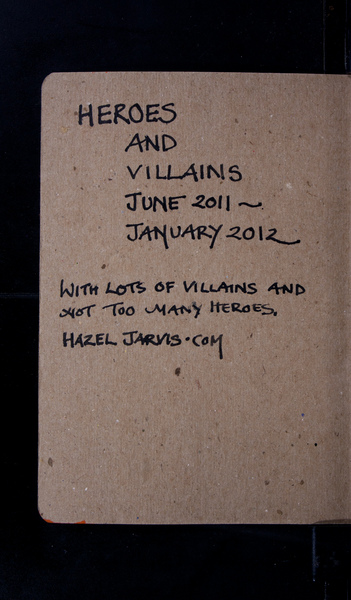 HEROES
AND
VILLAINS
JUNE 2011 ~
JANUARY 2012
WITH LOTS OF VILLAINS AND
NOT TOO MANY HEROES.
HAZEL JARVIS.COM